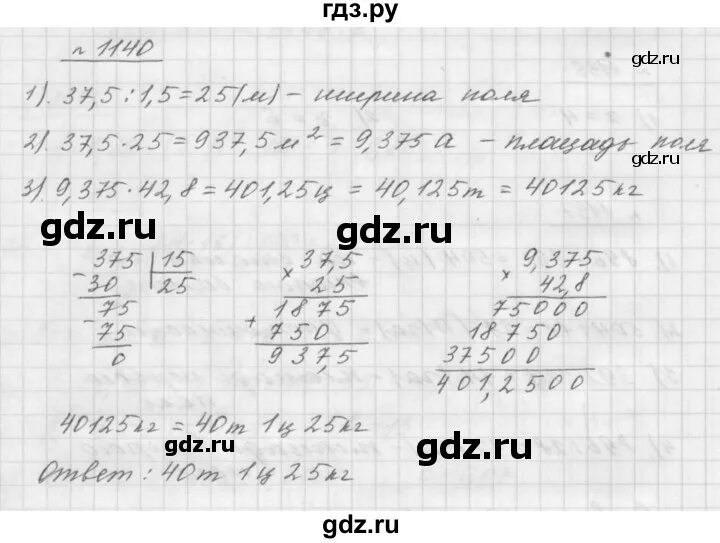 гдз.ру
n 1140
gdz.ru
1). 37,5 : 1,5 = 25 (м) - ширина поля
2). 37,5 · 25 = 937,5 м² = 9,375 а - площадь поля
gdz.ru
3). 9,375 · 42,8 = 401,25 ц = 40,125 т = 40125 кг
gdz.ru gdz.ru
- 375 | 15 × 37,5 × 9,375
30 25 25 42,8
- 75 + 1875 75000
75 750 18750
0 937,5 37500
401,2500
40125 кг = 40 т 1 ц 25 кг
gdz.ru gdz.ru
Ответ : 40 т 1 ц 25 кг
gdz.ru